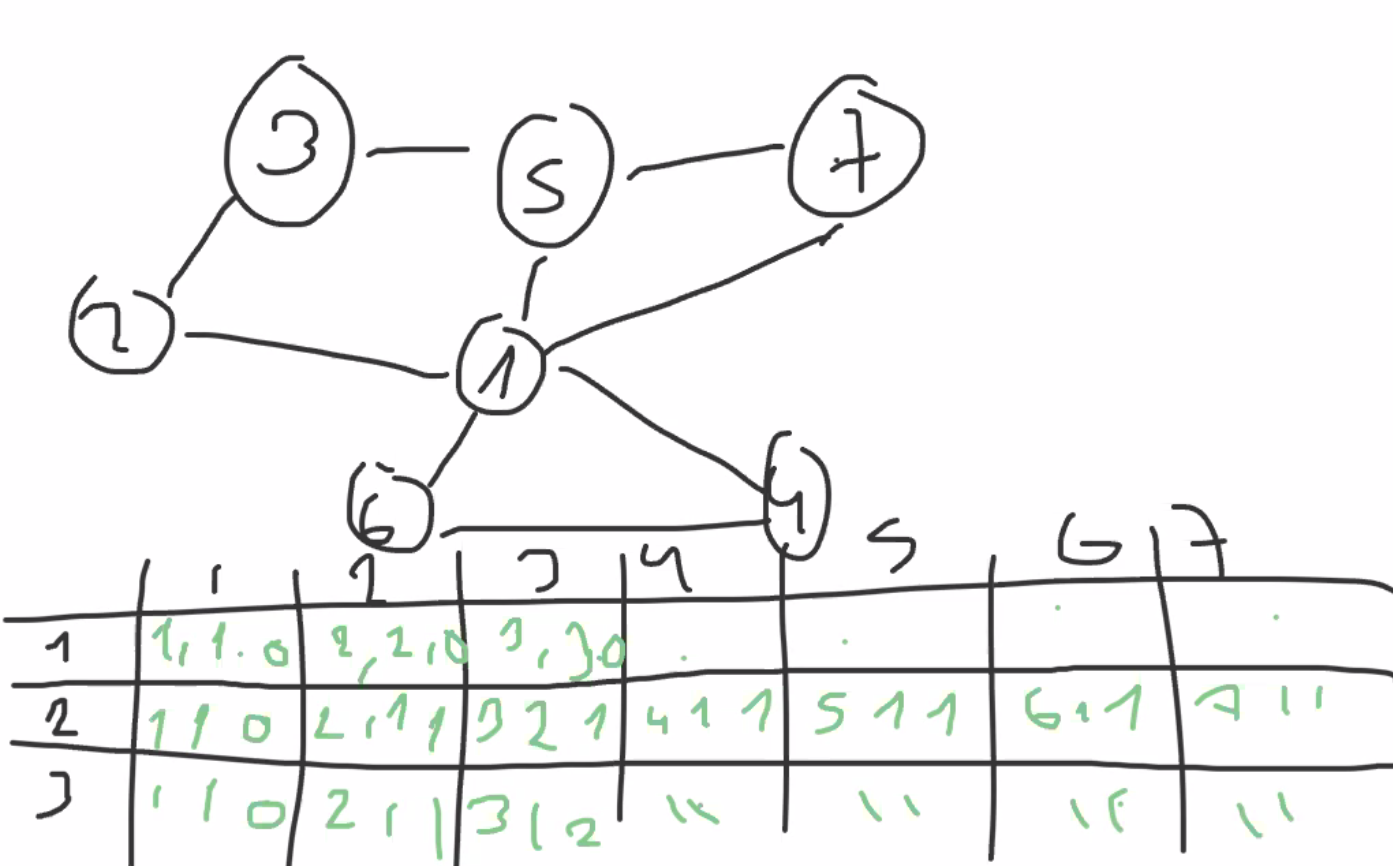 3 5 7
2 1
6 4
1 2 3 4 5 6 7
1 1,1.0 2,2,0 3,3.0 . . . .
2 1 1 0 2,1 1 3 2 1 4 1 1 5 1 1 6 1 1 7 1 1
3 1 1 0 2 1 1 3 1 2 " " " "